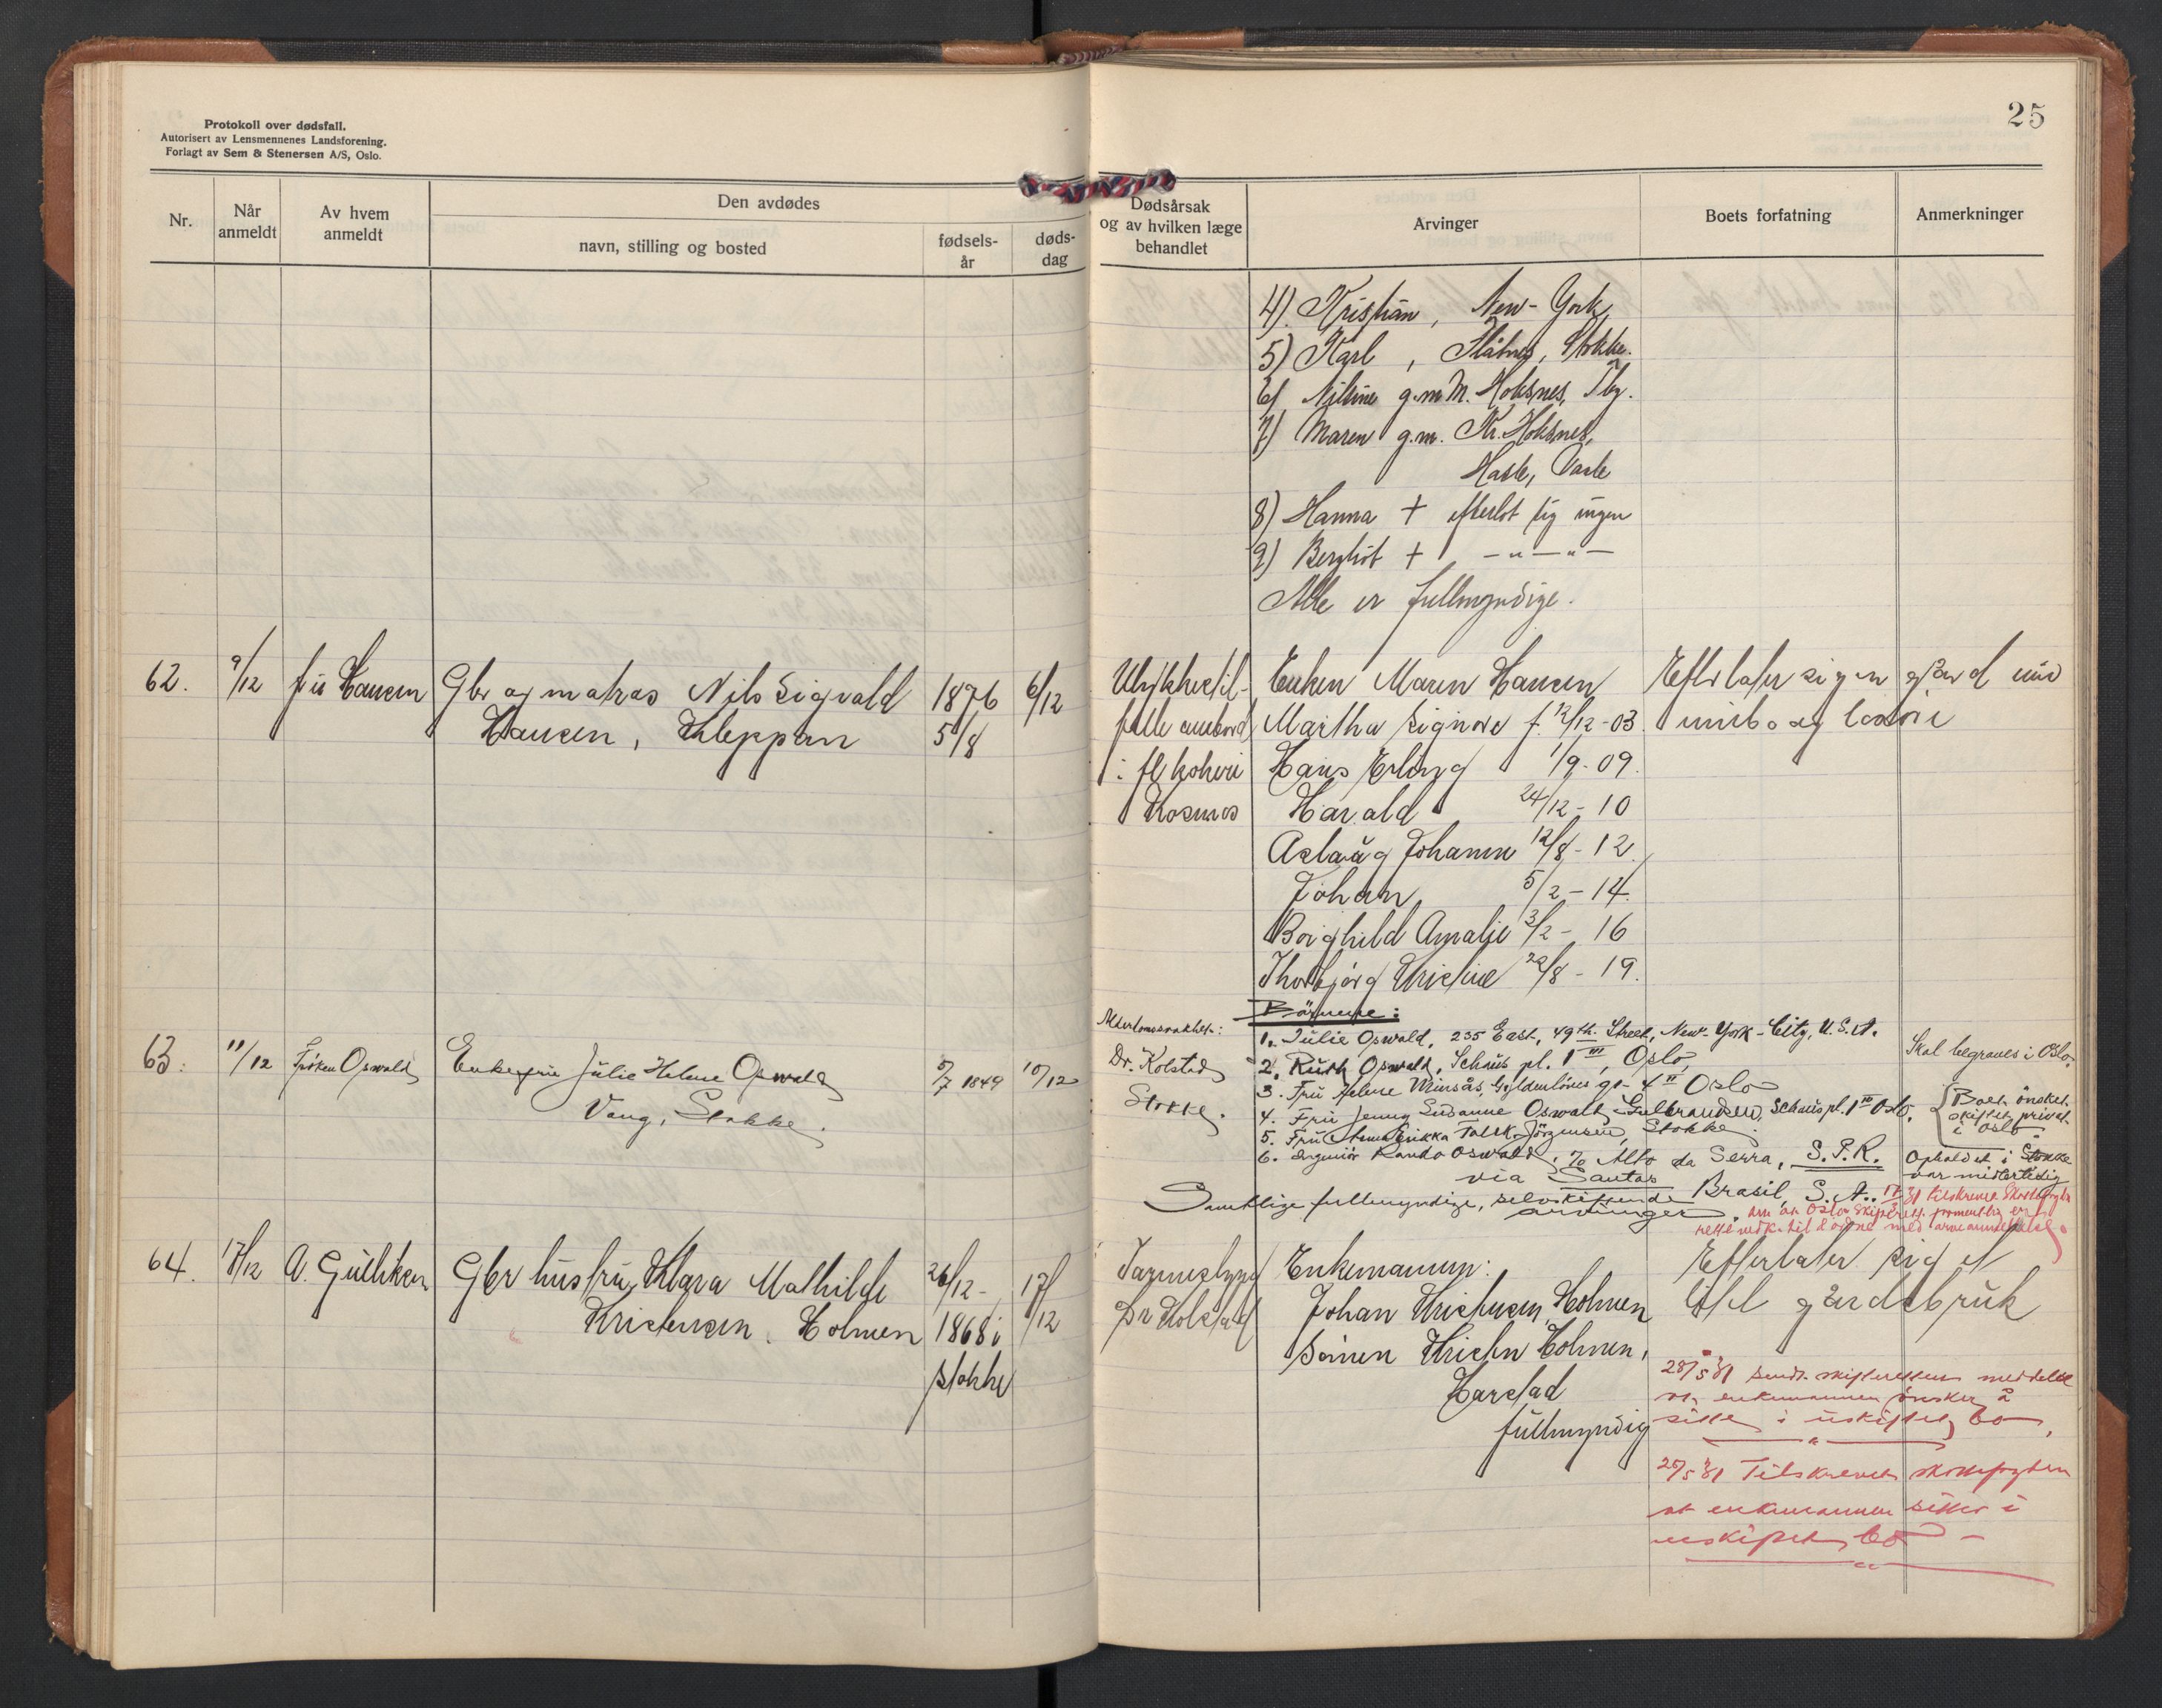 Protokoll over dødsfall.
Autorisert av Lensmennenes Landsforening.
Forlagt av Sem & Stenersen A/S, Oslo.
25
Nr.
Når anmeldt
Av hvem anmeldt
Den avdødes
navn, stilling og bosted
fødsels-år
døds-dag
Dødsårsak og av hvilken læge behandlet
Arvinger
Boets forfatning
Anmerkninger
4) Kristian, New-York,
5) Karl, Stokke.
6) g.m. M. Hoksnes, Tbg.
7) Maren g.m. Kr. Hoksnes,
Hasle,
8) Hanna + efterlot sig ingen
9) Bergliot + -"-"-
Alle er fullmyndige.
62. 9/12 fru Hansen
Gbr og matros Nils Sigvald
Hansen, Kleppan
1876
5/8
6/12
Ulykkestil-
felle ombord
i fl. kokeri
Kosmos
Enken Maren Hansen
Martha Signora f. 12/12-03.
Hans Erling 1/9-09.
Harald 24/12-10
Aslaug Johanne 12/8-12.
Johan 5/2-14.
Borghild Amalie 3/2-16
Thorbjørg Kristine 22/8-19.
Efterlater sig en gård med
innbo og løsøre
63. 11/12 Frøken Oswald
Enkefru Julie Helene Oswald
Vang, Stokke.
5/7 1849
10/12
Alderdomssvakhet:
Dr. Kolstad
Stokke.
Børnene:
1. Julie Oswald, 235 East, 49th. Street, New-York-City, U.S.A.
2. Ruth Oswald, Schous pl. 1 III, Oslo,
3. Fru Helene Winsås, Gyldenløves gt. 4 II Oslo
4. Fru Jenny Susanne Oswald Gulbrandsen, Schous pl. 1 III Oslo,
5. Fru Anna Erikka Falck-Jørgensen, Stokke.
6. Ingeniør Oswald, 70 Alto da Serra, S.P.R.
via Santos
Brasil, S.A.
Samtlige fullmyndige, selvskiftende
arvinger.
Skal begraves i Oslo.
Boet ønskes
skiftet privat
i Oslo.
Opholdet i Stokke
var midlertidig
64. 17/12 A. Gulliksen
Gbr hustru Klara Mathilde
Kristensen, Holmen
26/12-
1868 i
Stokke
17/12
Tarmslyng
Dr Kolstad
Enkemannen:
Johan Kristensen, Holmen
Sønnen Kristen Holmen,
Harstad
fullmyndig
Efterlater sig et
litet gårdsbruk
28/5 31 Sendt skifteretten meddelelse
at enkemannen ønsker å
sitte i uskiftet bo,
28/5 31 Tilskrevet skattefogden
at enkemannen sitter i
uskiftet bo -